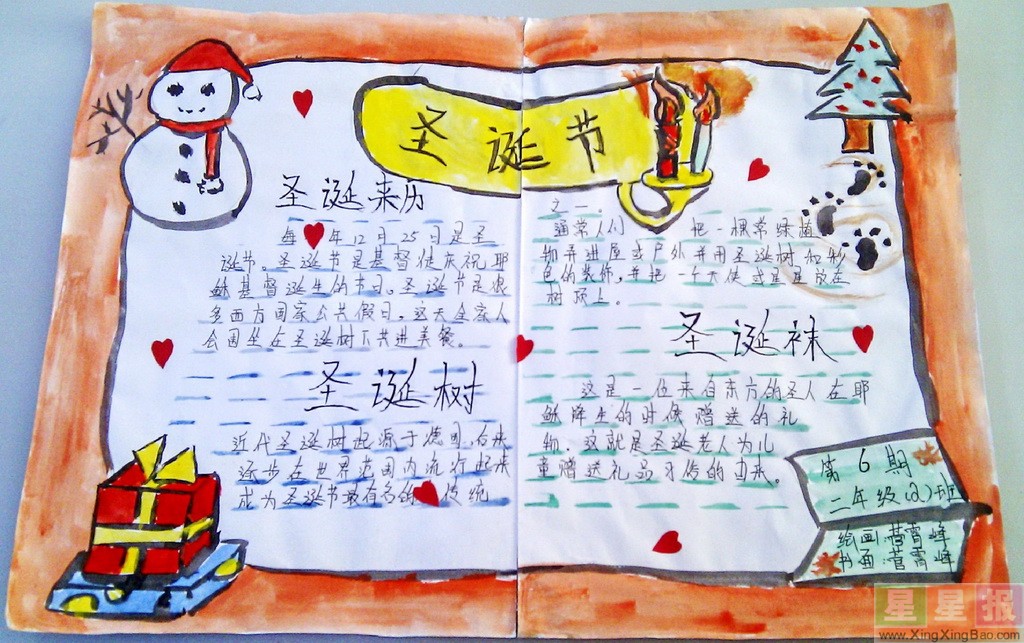 圣诞节
圣诞来历
每年12月25日是圣
诞节。圣诞节是基督徒庆祝耶
稣基督诞生的节日。圣诞节是很
多西方国家公共假日，这天全家人
会围坐在圣诞树下共进美餐。
圣诞树
近代圣诞树起源于德国，后来
逐步在世界范围内流行起来
成为圣诞节最有名的传统
之一。
通常人们把一棵常绿植
物弄进屋或户外并用圣诞树和彩
色的装饰，并把一个天使或星星放在
树顶上。
圣诞袜
这是一位来自东方的圣人在耶
稣降生的时候赠送的礼
物，这就是圣诞老人为儿
童赠送礼品习传的由来。
第6期
二年级(2)班
绘画:菅霄峰
书画:菅霄峰
星星报
www.XingXingBao.com